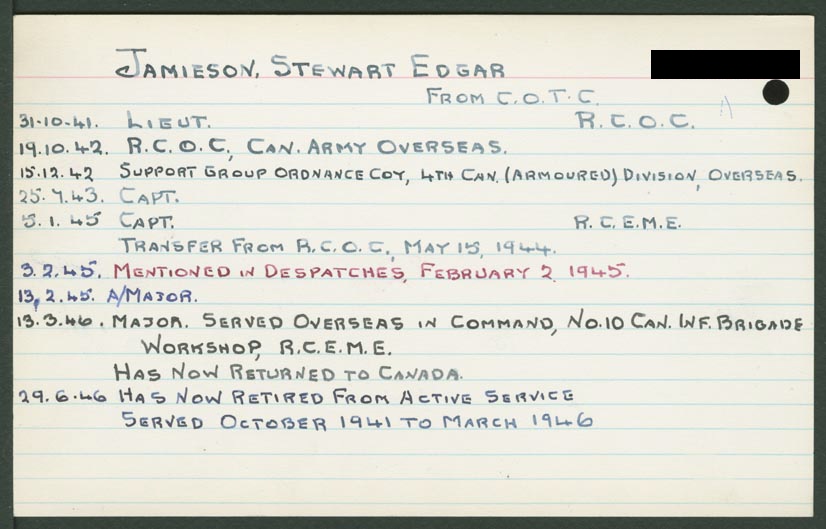 JAMIESON, STEWART EDGAR
FROM C.O.T.C.
31-10-41. LIEUT. R.C.O.C.
19.10.42. R.C.O.C., CAN. ARMY OVERSEAS.
15.12.42 SUPPORT GROUP ORDNANCE COY, 4TH CAN. (ARMOURED) DIVISION, OVERSEAS.
25.7.43. CAPT.
5.1.45 CAPT. R.C.E.M.E.
TRANSFER FROM R.C.O.C., MAY 15, 1944.
3.2.45. MENTIONED IN DESPATCHES, FEBRUARY 2, 1945.
13.2.45. A/MAJOR.
13.3.46. MAJOR. SERVED OVERSEAS IN COMMAND, NO.10 CAN. INF. BRIGADE
WORKSHOP, R.C.E.M.E.
HAS NOW RETURNED TO CANADA.
29.6.46 HAS NOW RETIRED FROM ACTIVE SERVICE
SERVED OCTOBER 1941 TO MARCH 1946